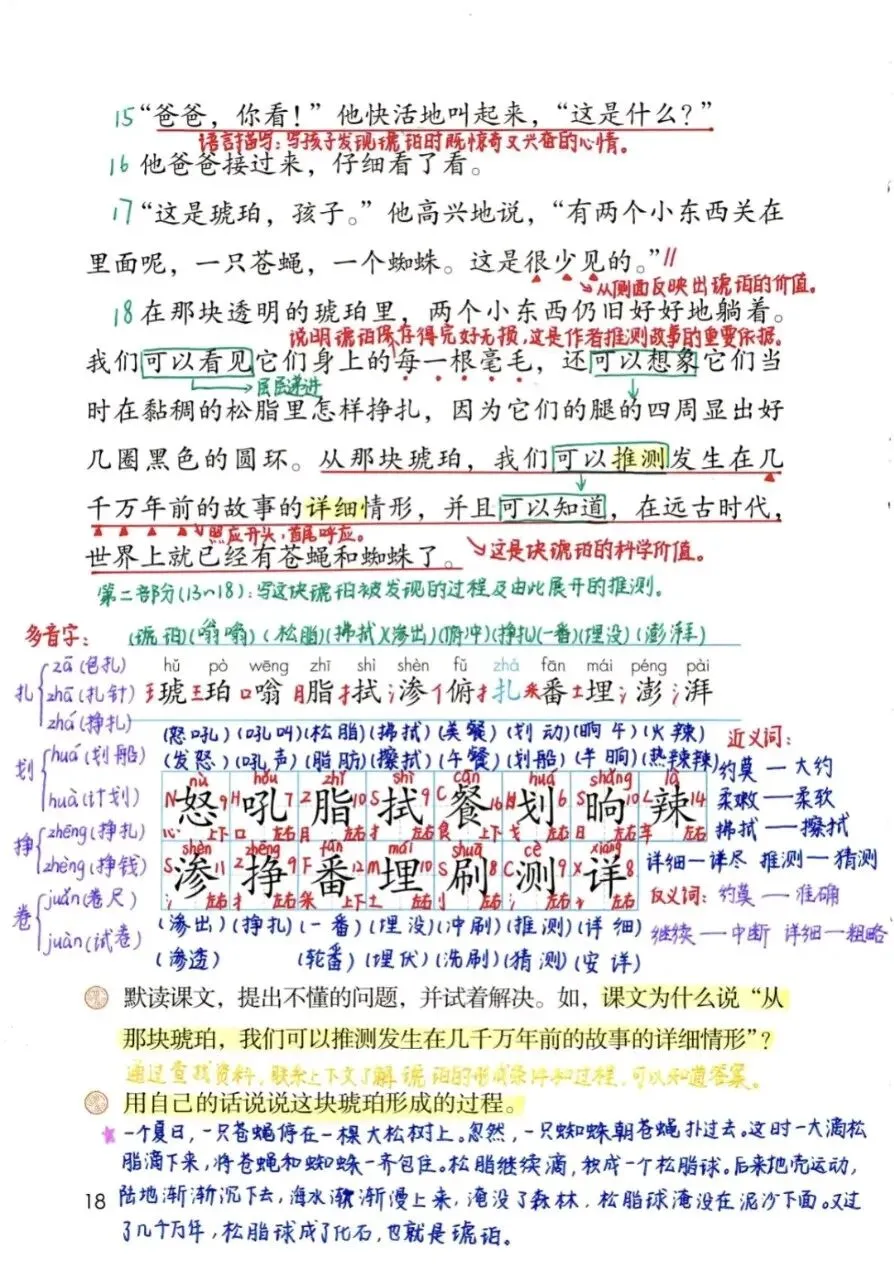 15 “爸爸，你看！”他快活地叫起来，“这是什么？”
语言描写：写孩子发现琥珀时既惊奇又兴奋的心情。
16 他爸爸接过来，仔细看了看。
17 “这是琥珀，孩子。”他高兴地说，“有两个小东西关在
里面呢，一只苍蝇，一个蜘蛛。这是很少见的。”//
从侧面反映出琥珀的价值。
18 在那块透明的琥珀里，两个小东西仍旧好好地躺着。
说明琥珀保存得完好无损，这是作者推测故事的重要依据。
我们可以看见它们身上的每一根毫毛，还可以想象它们当
层层递进
时在黏稠的松脂里怎样挣扎，因为它们的腿的四周显出好
几圈黑色的圆环。从那块琥珀，我们可以推测发生在几
千万年前的故事的详细情形，并且可以知道，在远古时代，
照应开头，首尾呼应。
世界上就已经有苍蝇和蜘蛛了。
这是块琥珀的科学价值。
第二部分(13~18)：写这块琥珀被发现的过程及由此展开的推测。
多音字：
(琥珀)(嗡嗡)(松脂)(拂拭)(渗出)(俯冲)(挣扎)(一番)(埋没)(澎湃)
hǔ pò wēng zhī shì shèn fǔ zhá fān mái péng pài
王琥王珀口嗡月脂扌拭氵渗亻俯扌扎釆番土埋氵澎氵湃
扎 zā(包扎)
zhā(扎针)
zhá(挣扎)
划 huá(划船)
huà(计划)
挣 zhēng(挣扎)
zhèng(挣钱)
卷 juǎn(卷尺)
juàn(试卷)
(怒吼)(吼叫)(松脂)(拂拭)(美餐)(划动)(晌午)(火辣)
(发怒)(吼声)(脂肪)(擦拭)(午餐)(划船)(半晌)(热辣辣)
nù hǒu zhī shì cān huá shǎng là
N怒9 H吼7 Z脂10 S拭9 C餐16 H划6 S晌10 L辣14
心 上下 口 左右 月 左右 扌 左右 食 上下 戈 左右 日 左右 辛 左右
shèn zhēng fān mái shuā cè xiáng
S渗11 Z挣9 F番12 M埋10 S刷8 C测9 X详8
氵 左右 扌 左右 釆 上下 土 左右 刂 左右 氵 左右 讠 左右
(渗出)(挣扎)(一番)(埋没)(冲刷)(推测)(详细)
(渗透)(轮番)(埋伏)(洗刷)(猜测)(安详)
近义词：
约莫—大约
柔嫩—柔软
拂拭—擦拭
详细—详尽 推测—猜测
反义词：约莫—准确
继续—中断 详细—粗略
默读课文，提出不懂的问题，并试着解决。如，课文为什么说“从
那块琥珀，我们可以推测发生在几千万年前的故事的详细情形”？
通过查找资料，联系上下文了解琥珀的形成条件和过程，可以知道答案。
用自己的话说说这块琥珀形成的过程。
一个夏日，一只苍蝇停在一棵大松树上。忽然，一只蜘蛛朝苍蝇扑过去。这时一大滴松
脂滴下来，将苍蝇和蜘蛛一齐包住。松脂继续滴，积成一个松脂球。后来地壳运动，
陆地渐渐沉下去，海水渐渐漫上来，淹没了森林，松脂球淹没在泥沙下面。又过
了几千万年，松脂球成了化石，也就是琥珀。
18